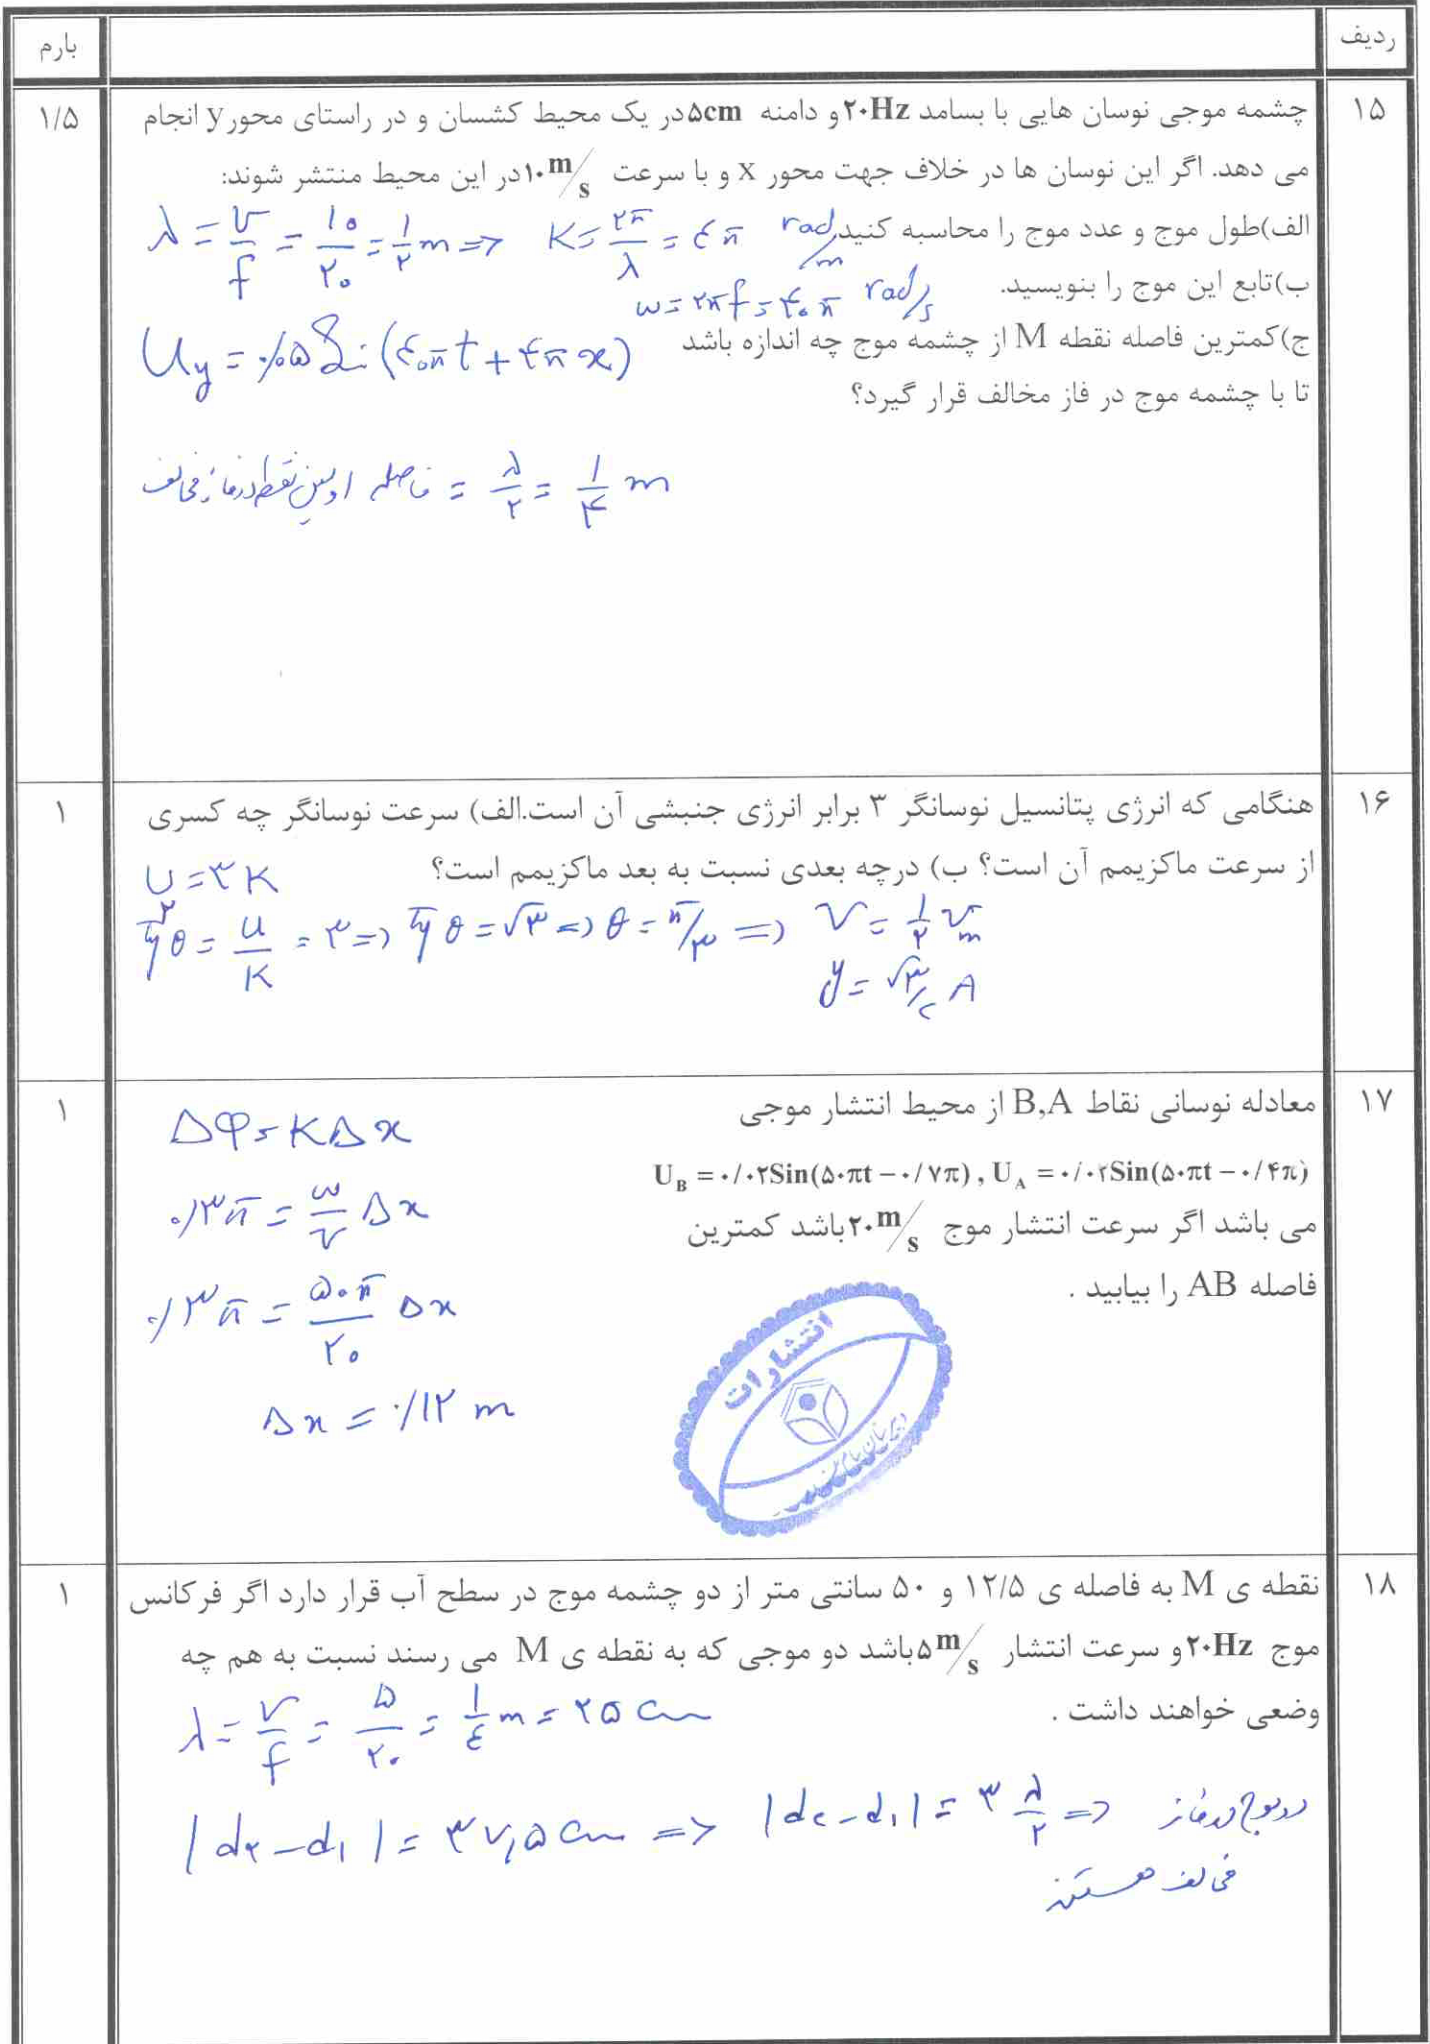 ردیف
بارم
۱۵
۱/۵
چشمه موجی نوسان هایی با بسامد ۲۰Hz و دامنه ۵cm در یک محیط کشسان و در راستای محور y انجام
می دهد. اگر این نوسان ها در خلاف جهت محور x و با سرعت ۱۰ m/s در این محیط منتشر شوند:
الف)طول موج و عدد موج را محاسبه کنید
λ = v/f = ۱۰/۲۰ = ۱/۲ m => K = ۲π/λ = ۴π rad/m
ب)تابع این موج را بنویسید.
ω = ۲πf = ۴۰π rad/s
ج)کمترین فاصله نقطه M از چشمه موج چه اندازه باشد
Uy = ۰/۰۵ Sin (۴۰πt + ۴πx)
تا با چشمه موج در فاز مخالف قرار گیرد؟
فاصله اولین نقطه در فاز مخالف = λ/۲ = ۱/۴ m
۱۶
۱
هنگامی که انرژی پتانسیل نوسانگر ۳ برابر انرژی جنبشی آن است.الف) سرعت نوسانگر چه کسری
از سرعت ماکزیمم آن است؟ ب) درچه بعدی نسبت به بعد ماکزیمم است؟
U = ۳K
tg²θ = U/K = ۳ => tgθ = √۳ => θ = π/۳ => v = ۱/۲ vm
y = √۳/۲ A
۱۷
۱
معادله نوسانی نقاط B,A از محیط انتشار موجی
Δφ = KΔx
U_B = ۰/۰۲Sin(۵۰πt − ۰/۷π) , U_A = ۰/۰۲Sin(۵۰πt − ۰/۴π)
می باشد اگر سرعت انتشار موج ۲۰ m/s باشد کمترین
۰/۳π = ω/v Δx
فاصله AB را بیابید .
۰/۳π = ۵۰π/۲۰ Δx
Δx = ۰/۱۲ m
انتشارات
۱۸
۱
نقطه ی M به فاصله ی ۱۲/۵ و ۵۰ سانتی متر از دو چشمه موج در سطح آب قرار دارد اگر فرکانس
موج ۲۰Hz و سرعت انتشار ۵ m/s باشد دو موجی که به نقطه ی M می رسند نسبت به هم چه
وضعی خواهند داشت .
λ = v/f = ۵/۲۰ = ۱/۴ m = ۲۵ Cm
|d۲ − d۱| = ۳۷,۵ Cm => |d۲ − d۱| = ۳ λ/۲ => دو موج در فاز
مخالف هستند